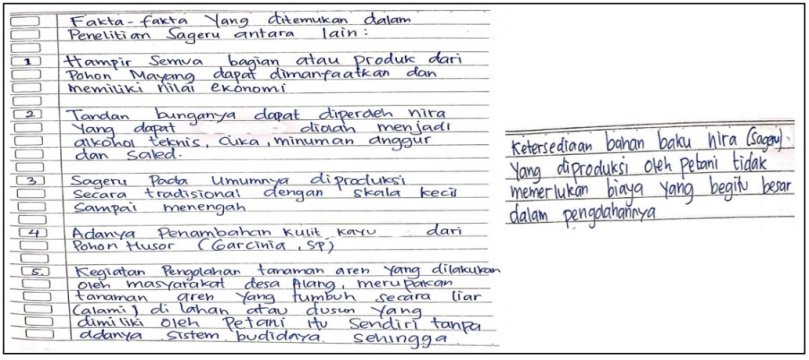 Fakta-fakta Yang ditemukan dalam
Penelitian Sageru antara lain:
1 Hampir Semua bagian atau Produk dari
Pohon Mayang dapat dimanfaatkan dan
memiliki nilai ekonomi
2 Tandan bunganya dapat diperoleh nira
Yang dapat diolah menjadi
alkohol teknis, Cuka, minuman anggur
dan
3 Sageru Pada Umumnya diproduksi
Secara tradisional dengan skala kecil
Sampai menengah
4 Adanya Penambahan Kulit kayu dari
Pohon Husor (Garcinia, SP)
5. Kegiatan Pengolahan tanaman aren Yang dilakukan
oleh masyarakat desa Alang, merupakan
tanaman aren Yang tumbuh secara liar
(alami) di lahan atau dusun Yang
dimiliki oleh Petani itu Sendiri tanpa
adanya Sistem budidaya sehingga
Ketersediaan bahan baku nira (Sageru)
Yang diproduksi oleh petani tidak
memerlukan biaya yang begitu besar
dalam pengolahannya